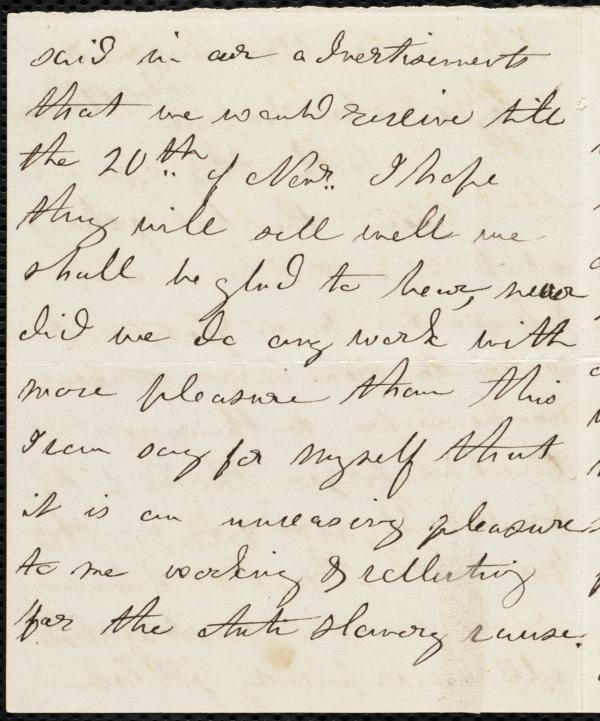 said in our advertisements
that we would receive till
the 20th of Novr. I hope
they will sell well we
shall be glad to hear, never
did we do any work with
more pleasure than this
I can say for myself that
it is an unceasing pleasure
to me working & collecting
for the Anti Slavery cause.